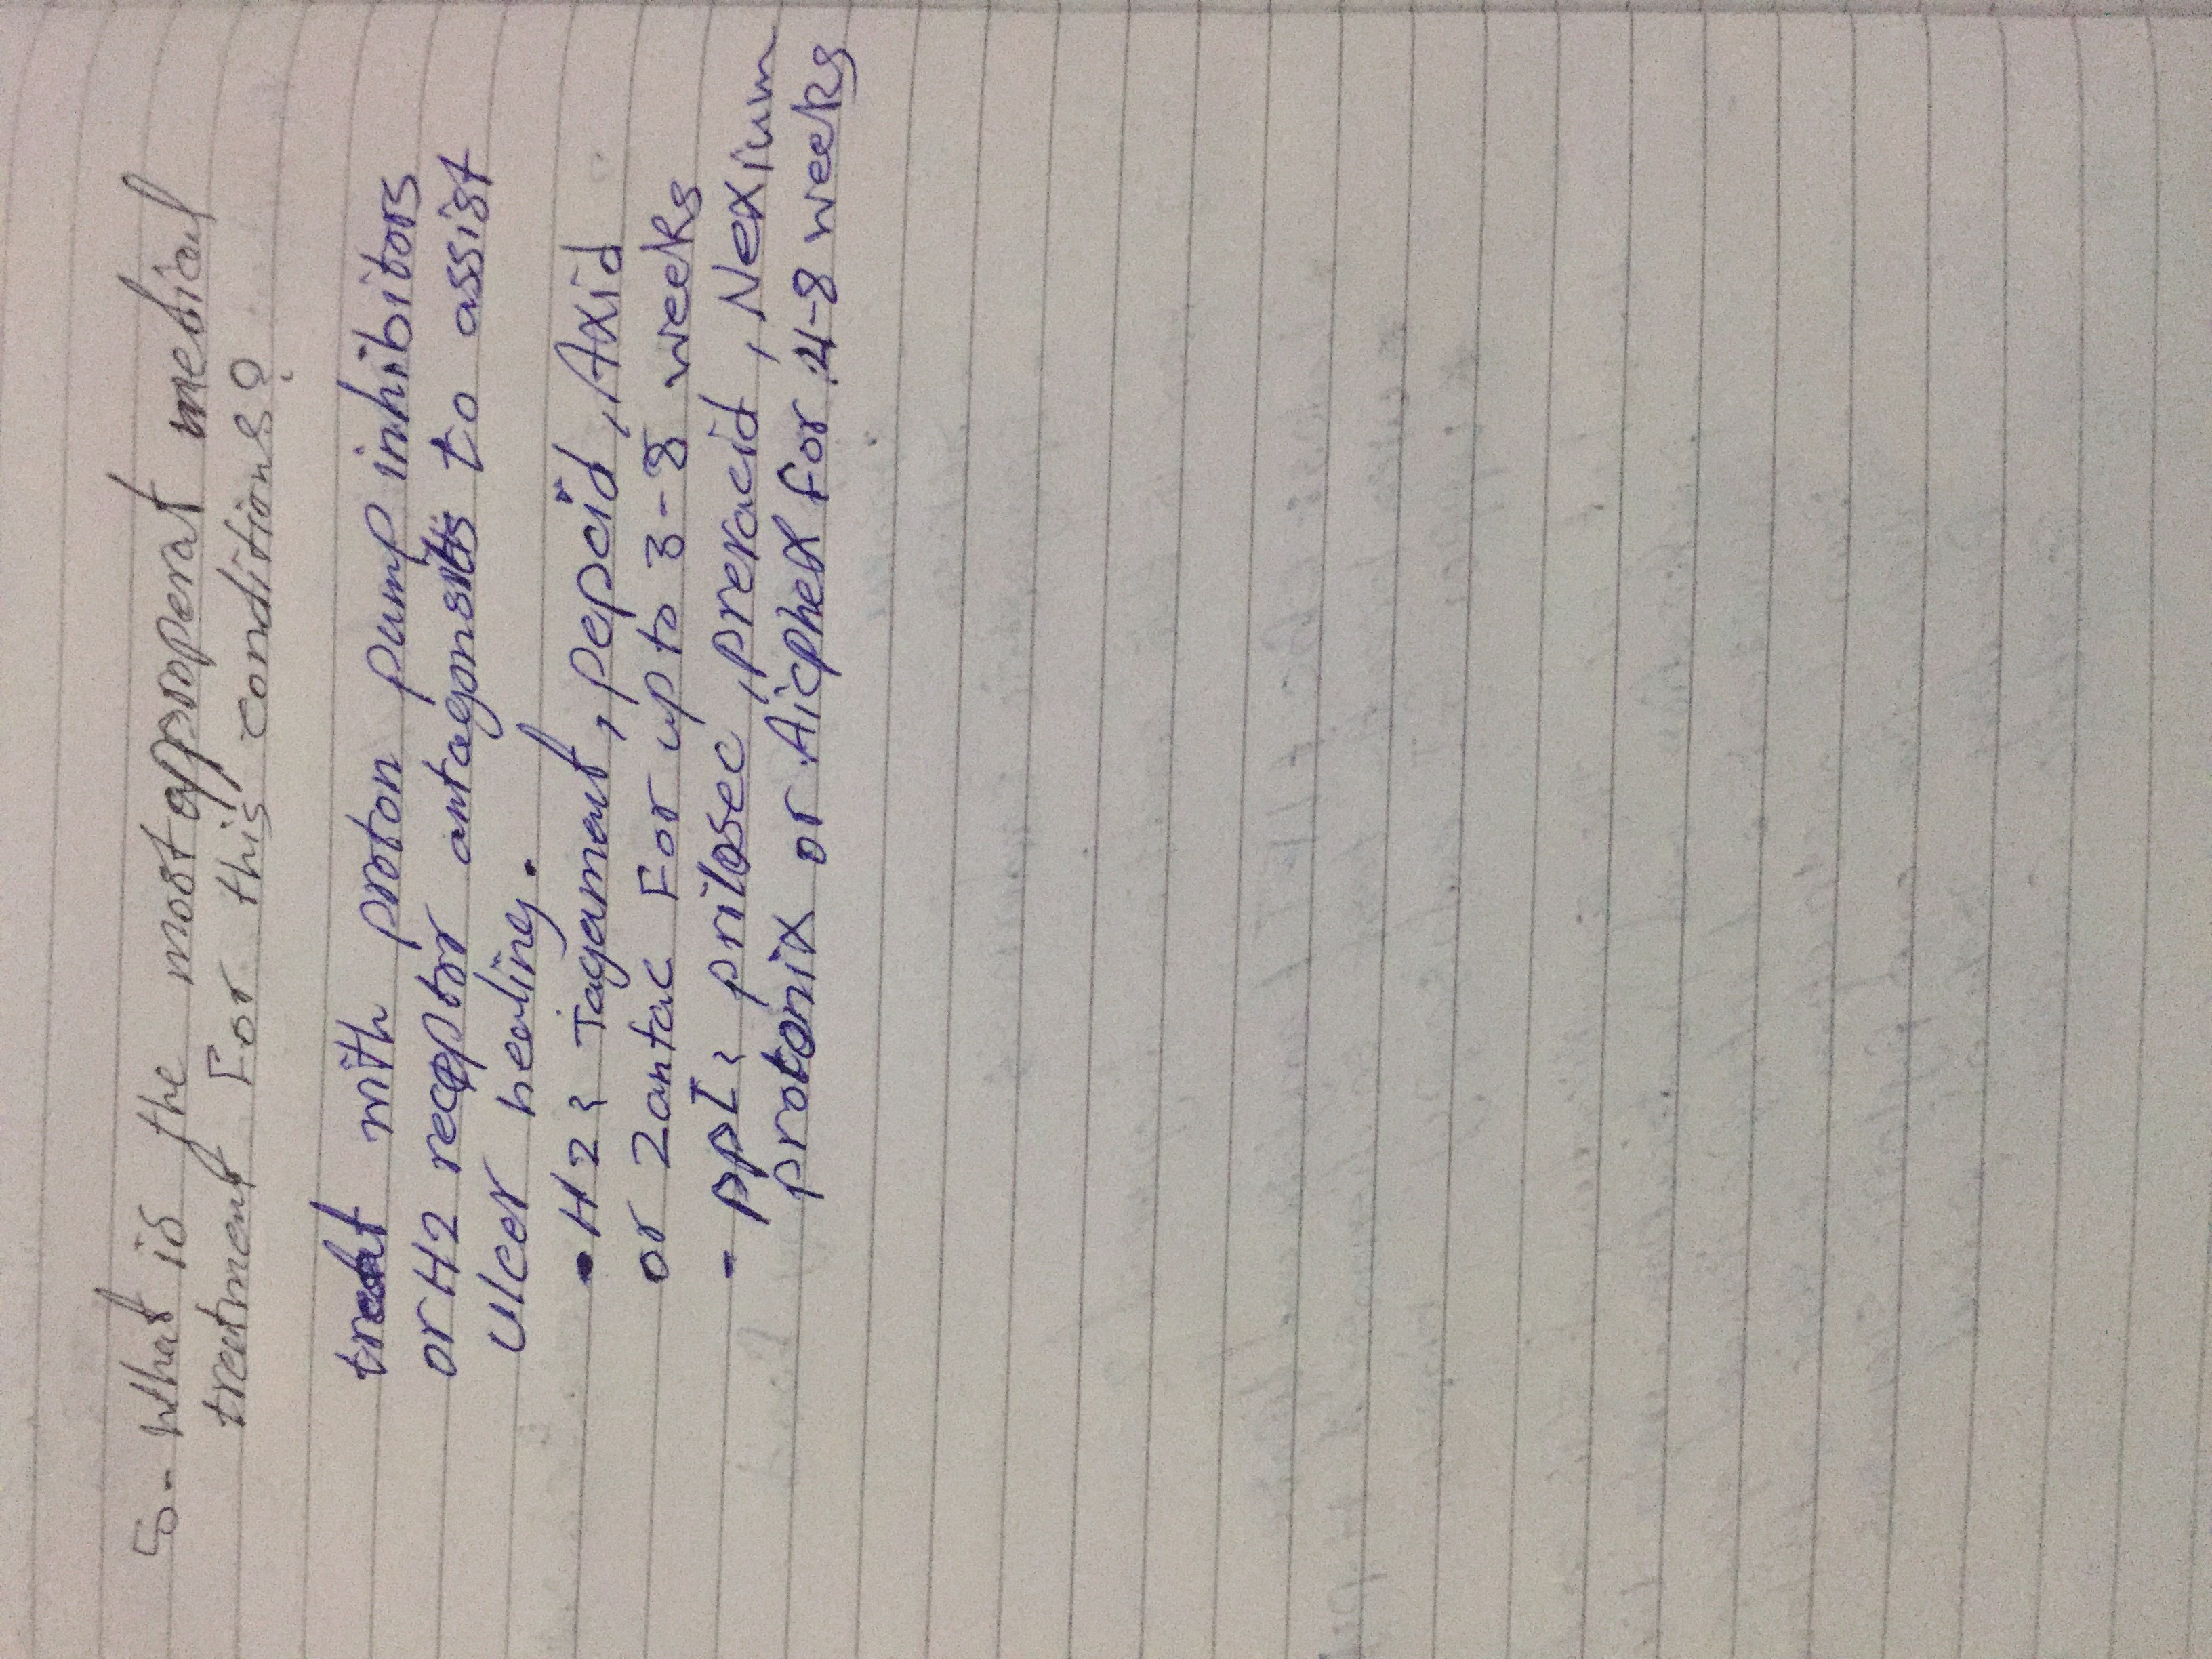 5- What is the most approperat medical
treatment For this conditions?
treat with proton pump inhibitors
or H2 receptor antagonsits to assist
ulcer healing.
• H2: Tagament, pepcid, Axid
or Zantac For up to 3-8 weeks
- PPI: prilosec, prevacid, Nexium
protonix or Aicphex for 4-8 weeks